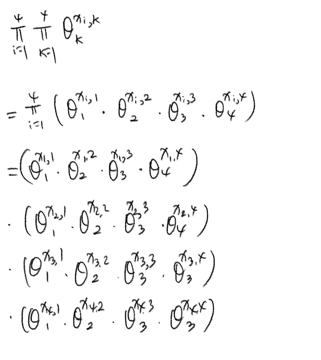 4 4
∏ ∏ θ_k^{x_{i,k}}
i=1 k=1
= ∏_{i=1}^{4} ( θ_1^{x_{i,1}} · θ_2^{x_{i,2}} · θ_3^{x_{i,3}} · θ_4^{x_{i,4}} )
= ( θ_1^{x_{1,1}} · θ_2^{x_{1,2}} · θ_3^{x_{1,3}} · θ_4^{x_{1,4}} )
· ( θ_1^{x_{2,1}} · θ_2^{x_{2,2}} · θ_3^{x_{2,3}} · θ_4^{x_{2,4}} )
· ( θ_1^{x_{3,1}} · θ_2^{x_{3,2}} · θ_3^{x_{3,3}} · θ_3^{x_{3,4}} )
· ( θ_1^{x_{4,1}} · θ_2^{x_{4,2}} · θ_3^{x_{4,3}} · θ_3^{x_{4,4}} )